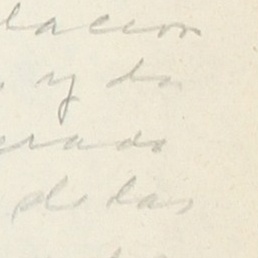 lacion
, y do
erado
de las